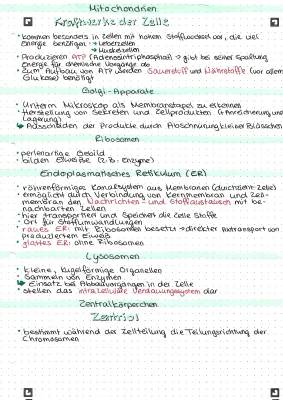 Mitochondrien
Kraftwerke der Zelle
• kommen besonders in Zellen mit hohem Stoffwechsel vor, die viel
Energie benötigen → Leberzellen
→ Muskelzellen
• Produzieren ATP (Adenosintriphosphat) → gibt bei seiner Spaltung
Energie für chemische Vorgänge ab
• Zum Aufbau von ATP werden Sauerstoff und Nährstoffe (vor allem
Glukose) benötigt
Golgi-Apparate
• Unterm Mikroskop als Membranstapel zu erkennen
• Herstellung von Sekreten und Zellprodukten (+Anreicherung und
Lagerung)
↳ Ausschleusen der Produkte durch Abschnürung kleiner Bläschen
Ribosomen
• perlenartige Gebild
• bilden Eiweiße (z.B. Enzyme)
Endoplasmatisches Retikulum (ER)
• röhrenförmiges Kanalsystem aus Membranen (durchzieht Zelle)
• ermöglicht durch Verbindung von Kernmembran und Zell-
membran den Nachrichten- und Stoffaustausch mit be-
nachbarten Zellen
• hier transportiert und speichert die Zelle Stoffe
• Ort für Stoffumwandlungen
• raues ER: mit Ribosomen besetzt → direkter Abtransport von
produziertem Eiweiß
• glattes ER: ohne Ribosomen
Lysosomen
• kleine, kugelförmige Organellen
• Sammeln von Enzymen
↳ Einsatz bei Abbauvorgängen in der Zelle
• stellen das intrazelluläre Verdauungssystem dar
Zentralkörperchen
Zentriol
• bestimmt während der Zellteilung die Teilungsrichtung der
Chromosomen